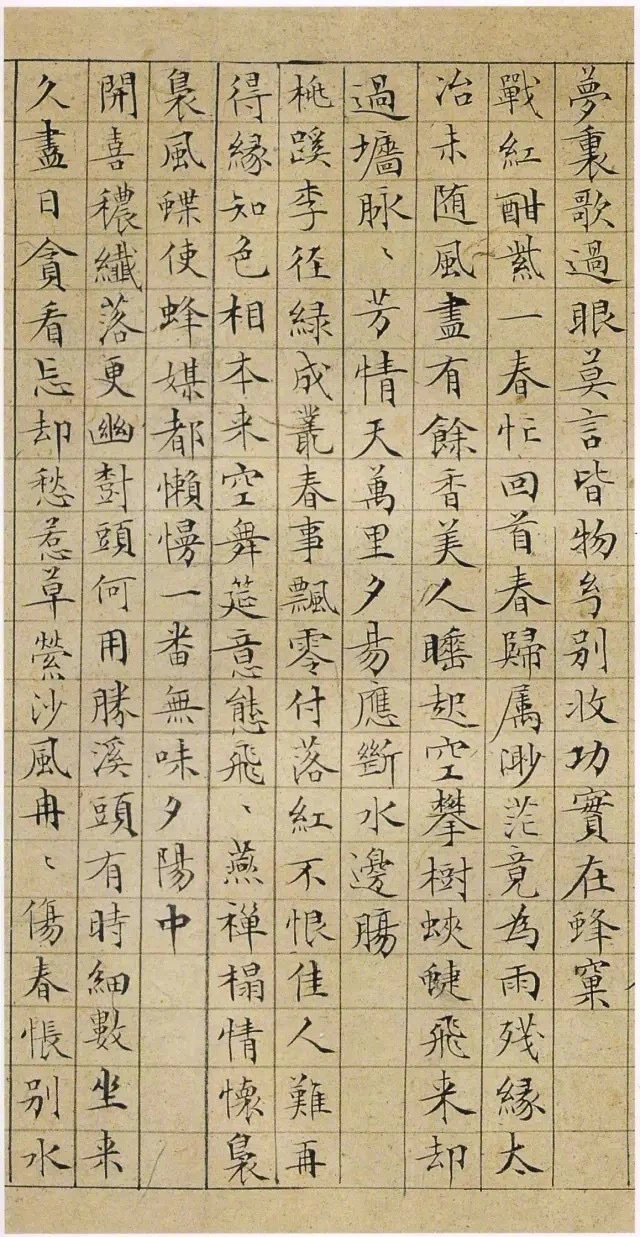 夢裏歌過眼莫言皆物幻别收功實在蜂窠
戰紅酣紫一春忙回首春歸屬渺茫竟為雨殘緣太
冶未随風盡有餘香美人睡起空攀樹蛺蝶飛来却
過墻脉〻芳情天萬里夕昜應斷水邊腸
桃蹊李徑緑成叢春事飄零付落紅不恨佳人難再
得緣知色相本来空舞筵意態飛〻燕禅榻情懷裊
裊風蝶使蜂媒都懶慢一番無味夕陽中
開喜穠纖落更幽樹頭何用勝溪頭有時細數坐来
久盡日貪看忘却愁惹草縈沙風冉〻傷春悵别水